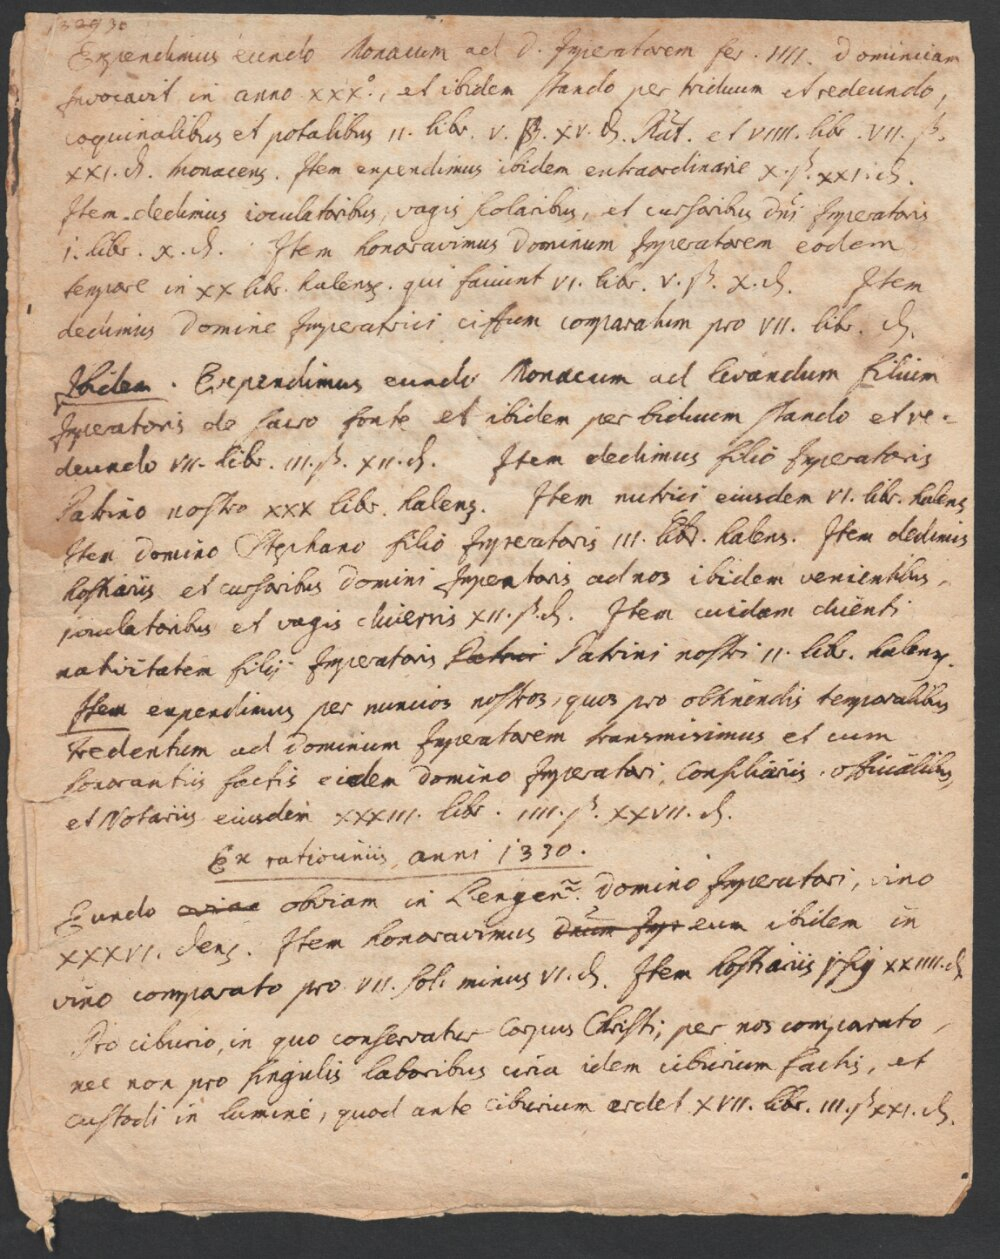 1330
Expendimus eundo Monacum ad D. Imperatorem fer. IIII. Dominicam
Invocavit in anno XXX°., et ibidem stando per triduum et redeundo,
coquinalibus et potalibus II. libr. V. ß. XV. d. Rat. et VIIII. libr. VII. ß.
XXI. d. Monacens. Item expendimus ibidem extraordinarie X. ß. XXI. d.
Item dedimus ioculatoribus, vagis scolaribus, et cursoribus dni Imperatoris
I. libr. X. d. Item honoravimus Dominum Imperatorem eodem
tempore in XX libr. halens. qui faciunt VI. libr. V. ß. X. d. Item
dedimus Domine Imperatrici ciffum comparatum pro VII. libr. d.
Ibidem. Expendimus eundo Monacum ad levandum filium
Imperatoris de sacro fonte et ibidem per biduum stando et re-
deundo VII. libr. III. ß. XII. d. Item dedimus filio Imperatoris
Patrino nostro XXX libr. halens. Item nutrici eiusdem VI. libr. halens
Item domino Stephano filio Imperatoris III. libr. halens. Item dedimus
hostiariis et cursoribus domini Imperatoris ad nos ibidem venientibus,
ioculatoribus et vagis diversis XII. ß. d. Item cuidam clienti
nativitatem filij Imperatoris Patrini nostri II. libr. halens.
Item expendimus per nuncios nostros, quos pro obtinendis temporalibus
Tredentum ad dominum Imperatorem transmisimus et cum
honorantiis factis eidem domino Imperatori, Consiliariis, officialibus,
et Notariis eiusdem XXXIII. libr. IIII. ß. XXVII. d.
Ex ratiociniis anni 1330.
Eundo obviam in Lengen. Domino Imperatori, vino
XXXVI. dens. Item honoravimus Dnum eum ibidem in
vino comparato pro VII. sol. minus VI. d. Item hostiariis ipsius XXIIII. d
Pro ciburio, in quo conservatur Corpus Christi, per nos comparato,
nec non pro singulis laboribus circa idem ciburium factis, et
custodi in lumine, quod ante ciburium ardet XVII. libr. III. ß XXI. d.